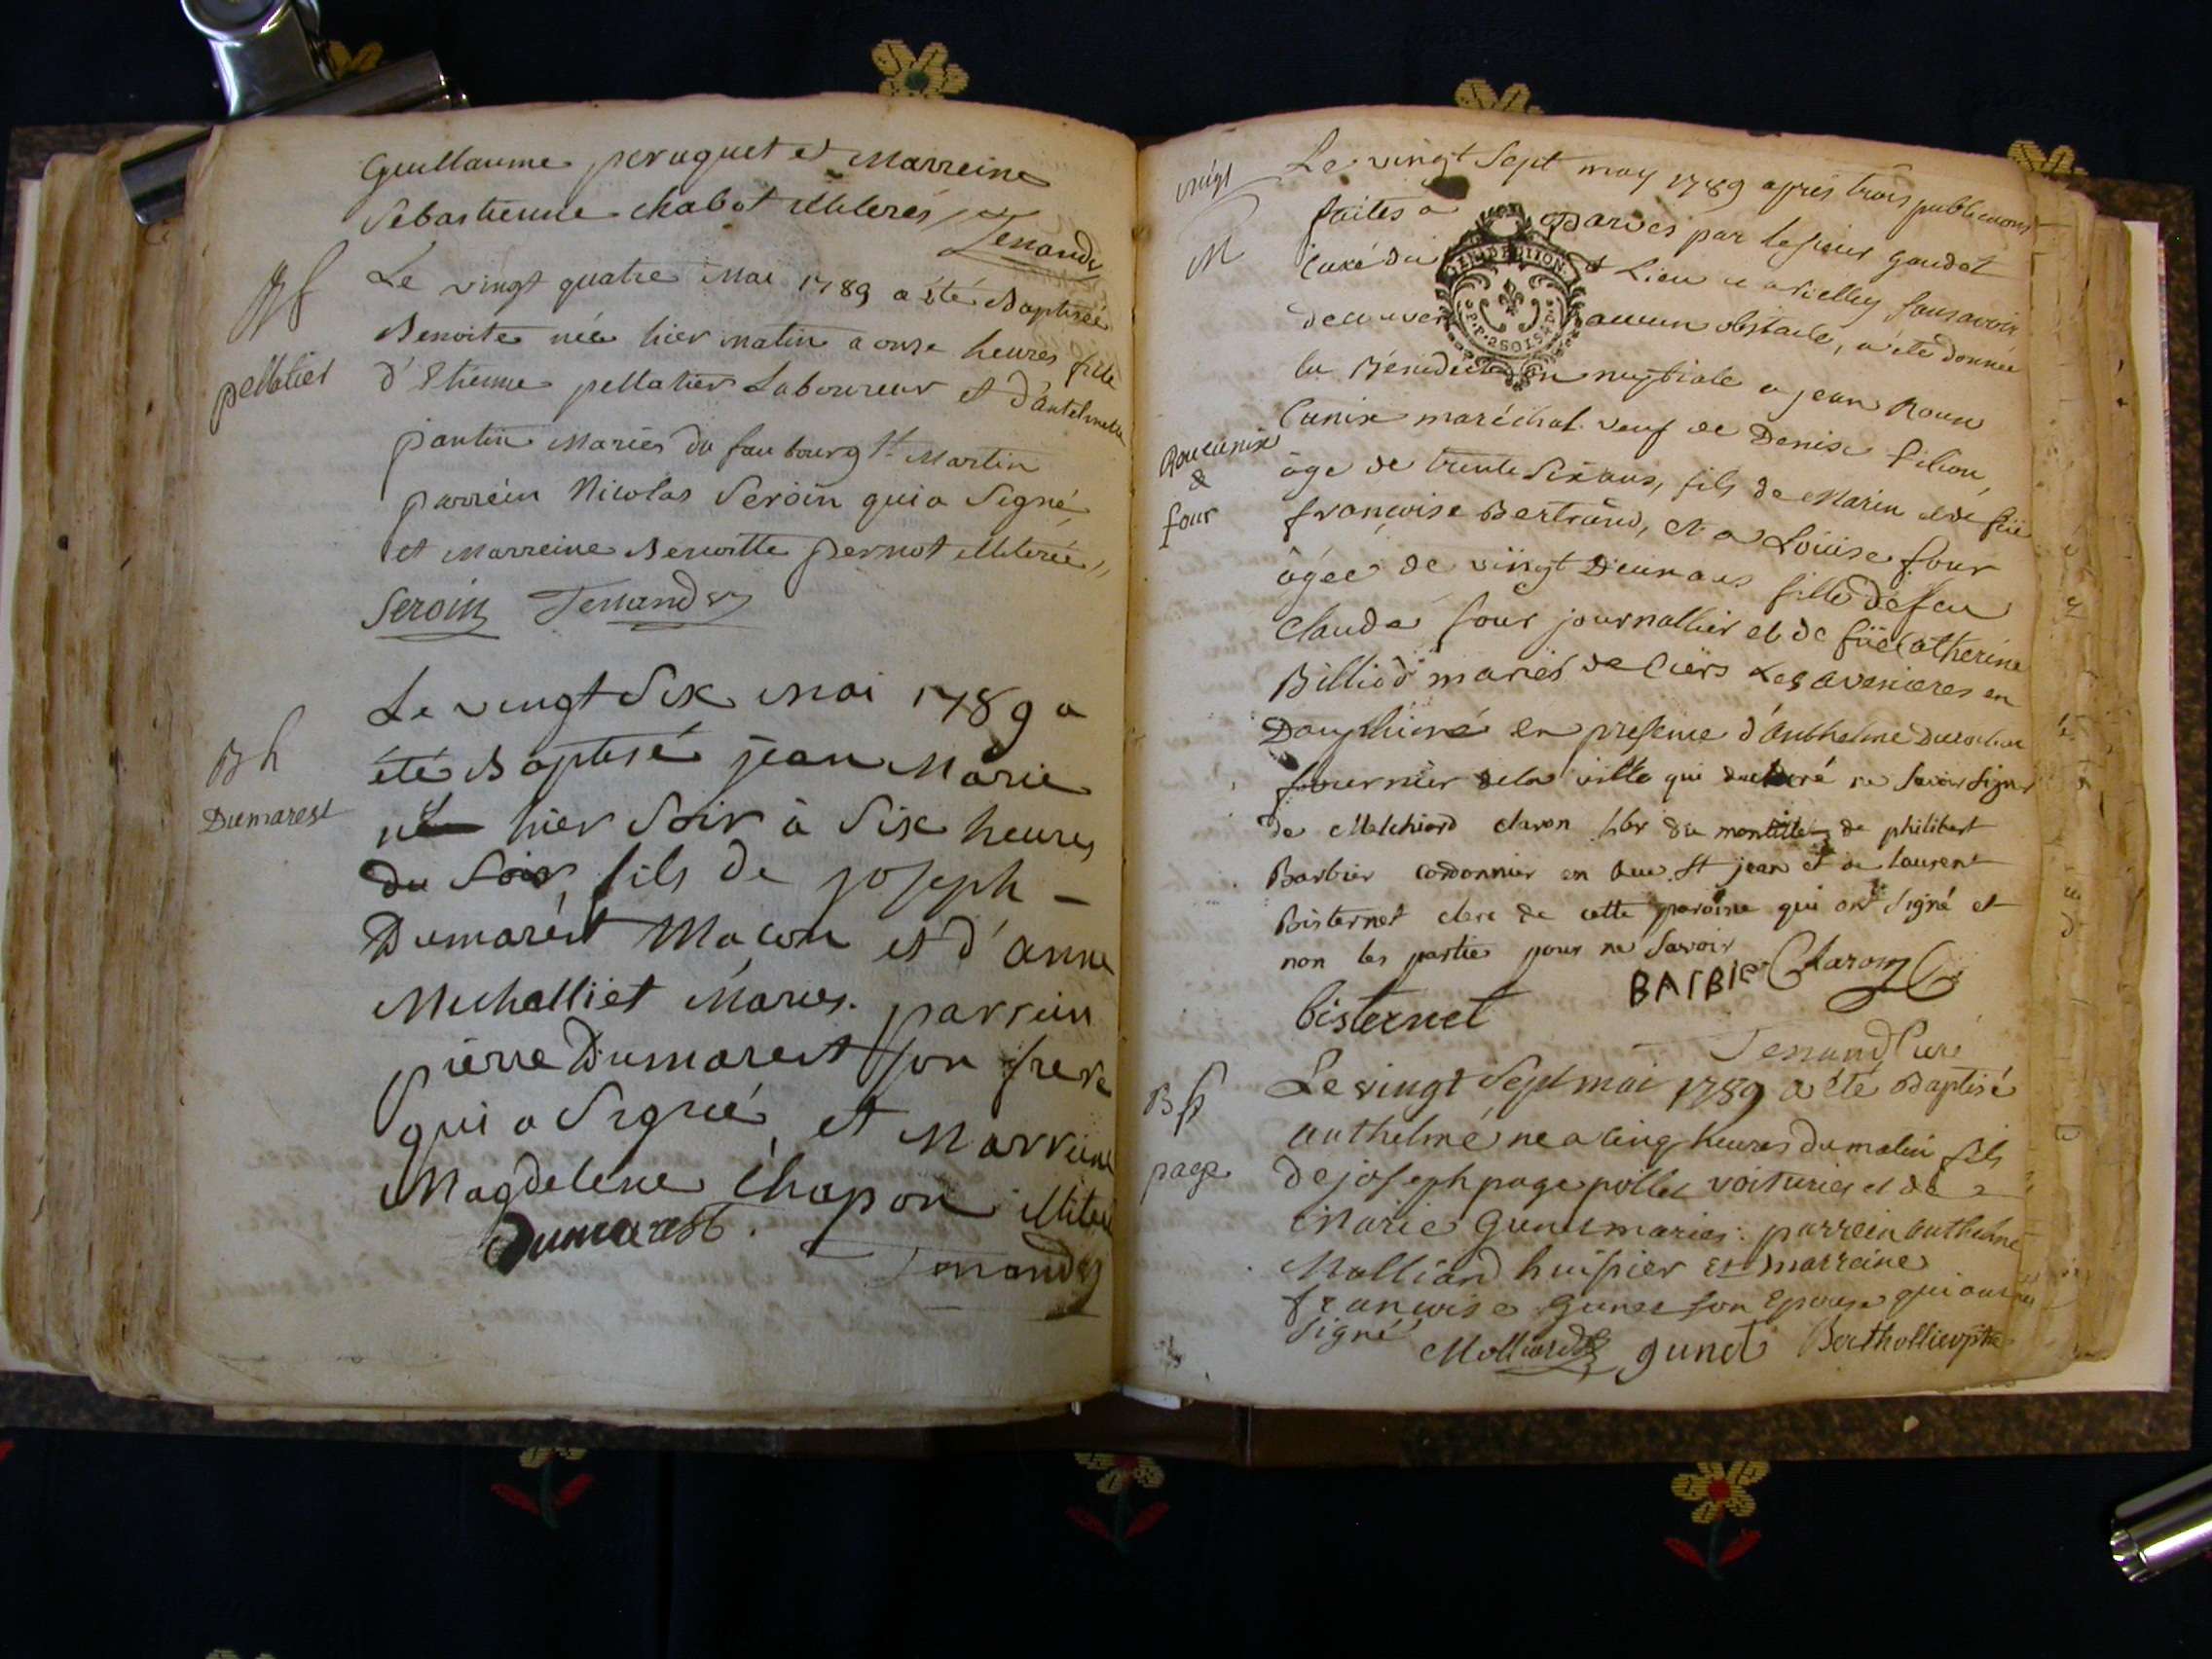 Guillaume peruquet et Marreine
Sebastienne chabot illiterés
Tenand
Bf
pellatier
Le vingt quatre Mai 1789 a été Baptisée
Benoite née hier matin a onze heures fille
d'Etienne pellatier Laboureur et d'antelmette
jantin Mariés du faubourg St Martin
parrein Nicolas Seroin qui a Signé,
et Marreine Benoitte pernot illiterée,,
Seroin Tenand
Bh
Dumarest
Le vingt Six Mai 1789 a
été Baptisé jean Marie
né hier Soir à Six heures
du Soir, fils de joseph -
Dumarest Macon et d'anne
Michalliet Mariés. parrein
pierre Dumarest son frere
qui a Signé, et Marreine
Magdelene Chapon illite
Dumarest.
Tenand
vingt
M
Roucunix
&
four
Le vingt Sept may 1789 après trois publications
faites a par le sieur gaudet
Curé du Lieu sans avoir
GEN. DE DIJON.
P.P. 2SOLS 4D.
aucun obstacle, a été donnée
la Bénédiction nuptiale a jean Roux
Cunix maréchal veuf de Denise filion,
âgé de trente Six ans, fils de Marin et de fûe
françoise Bertrand, et a Loüise four
âgée de vingt Deux ans fille de feu
Claude four journallier et de fûe Catherine
Billiod mariés de Ciers Les avenieres en
Dauphiné en présence d'Anthelme
fournier de la ville qui déclaré ne Savoir Signer
de Melchiord claron lbr du de philibert
Barbier cordonnier en Rue St jean et de laurent
Bisternet clerc de cette paroisse qui ont Signé et
non les parties pour ne Savoir
BARBIER Claron
bisternet
Tenand Curé
Bf
page
Le vingt Sept mai 1789 a été Baptisé
anthelme né a cinq heures du matin fils
de joseph page pollet voiturier et de
Marie Gunet mariés: parrein anthelme
Molliard huissier et marraine
françoise gunet son Epouse qui ont
signé
Molliard gunet Berthollier ptre